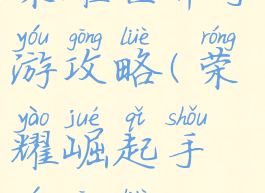 yóu gōng lüè róng
游攻略(荣
yào jué qǐ shǒu
耀崛起手